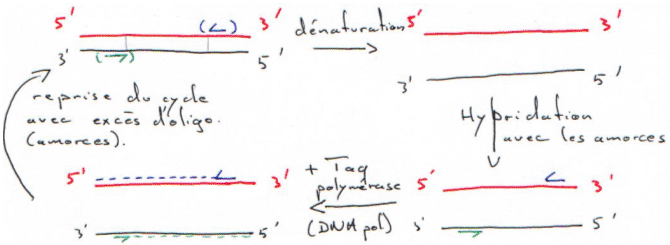 5' 3'
3' 5'
dénaturation
5' 3'
3' 5'
Hybridation
avec les amorces
5' 3'
3' 5'
+ Taq
polymérase
(DNA pol)
5' 3'
3' 5'
reprise du cycle
avec excès d'oligo.
(amorces).